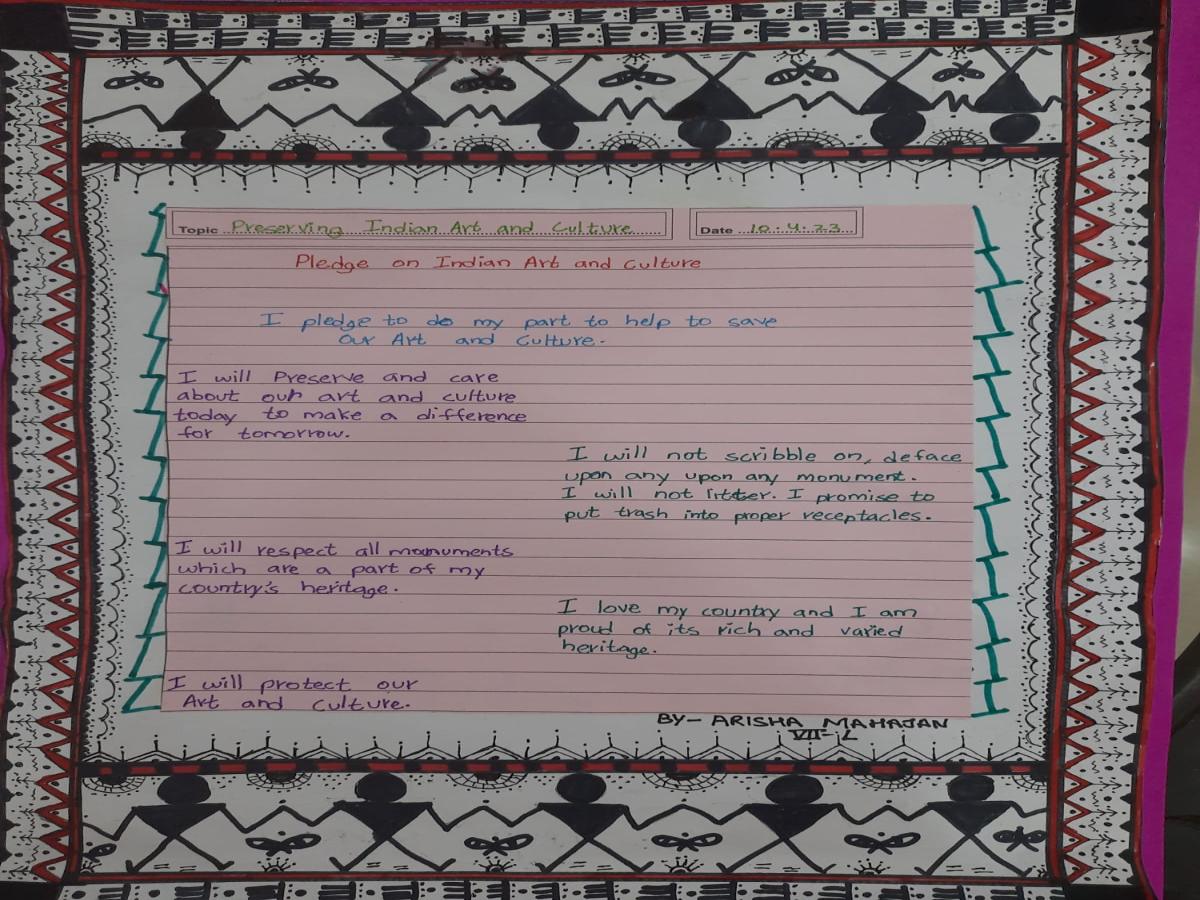 Topic Preserving Indian Art and Culture
Date 10.4.23
Pledge on Indian Art and culture
I pledge to do my part to help to save
our Art and Culture.
I will Preserve and care
about our art and culture
today to make a difference
for tomorrow.
I will not scribble on, deface
upon any upon any monument.
I will not litter. I promise to
put trash into proper receptacles.
I will respect all monuments
which are a part of my
country's heritage.
I love my country and I am
proud of its rich and varied
heritage.
I will protect our
Art and Culture.
BY- ARISHA MAHAJAN
VII-L